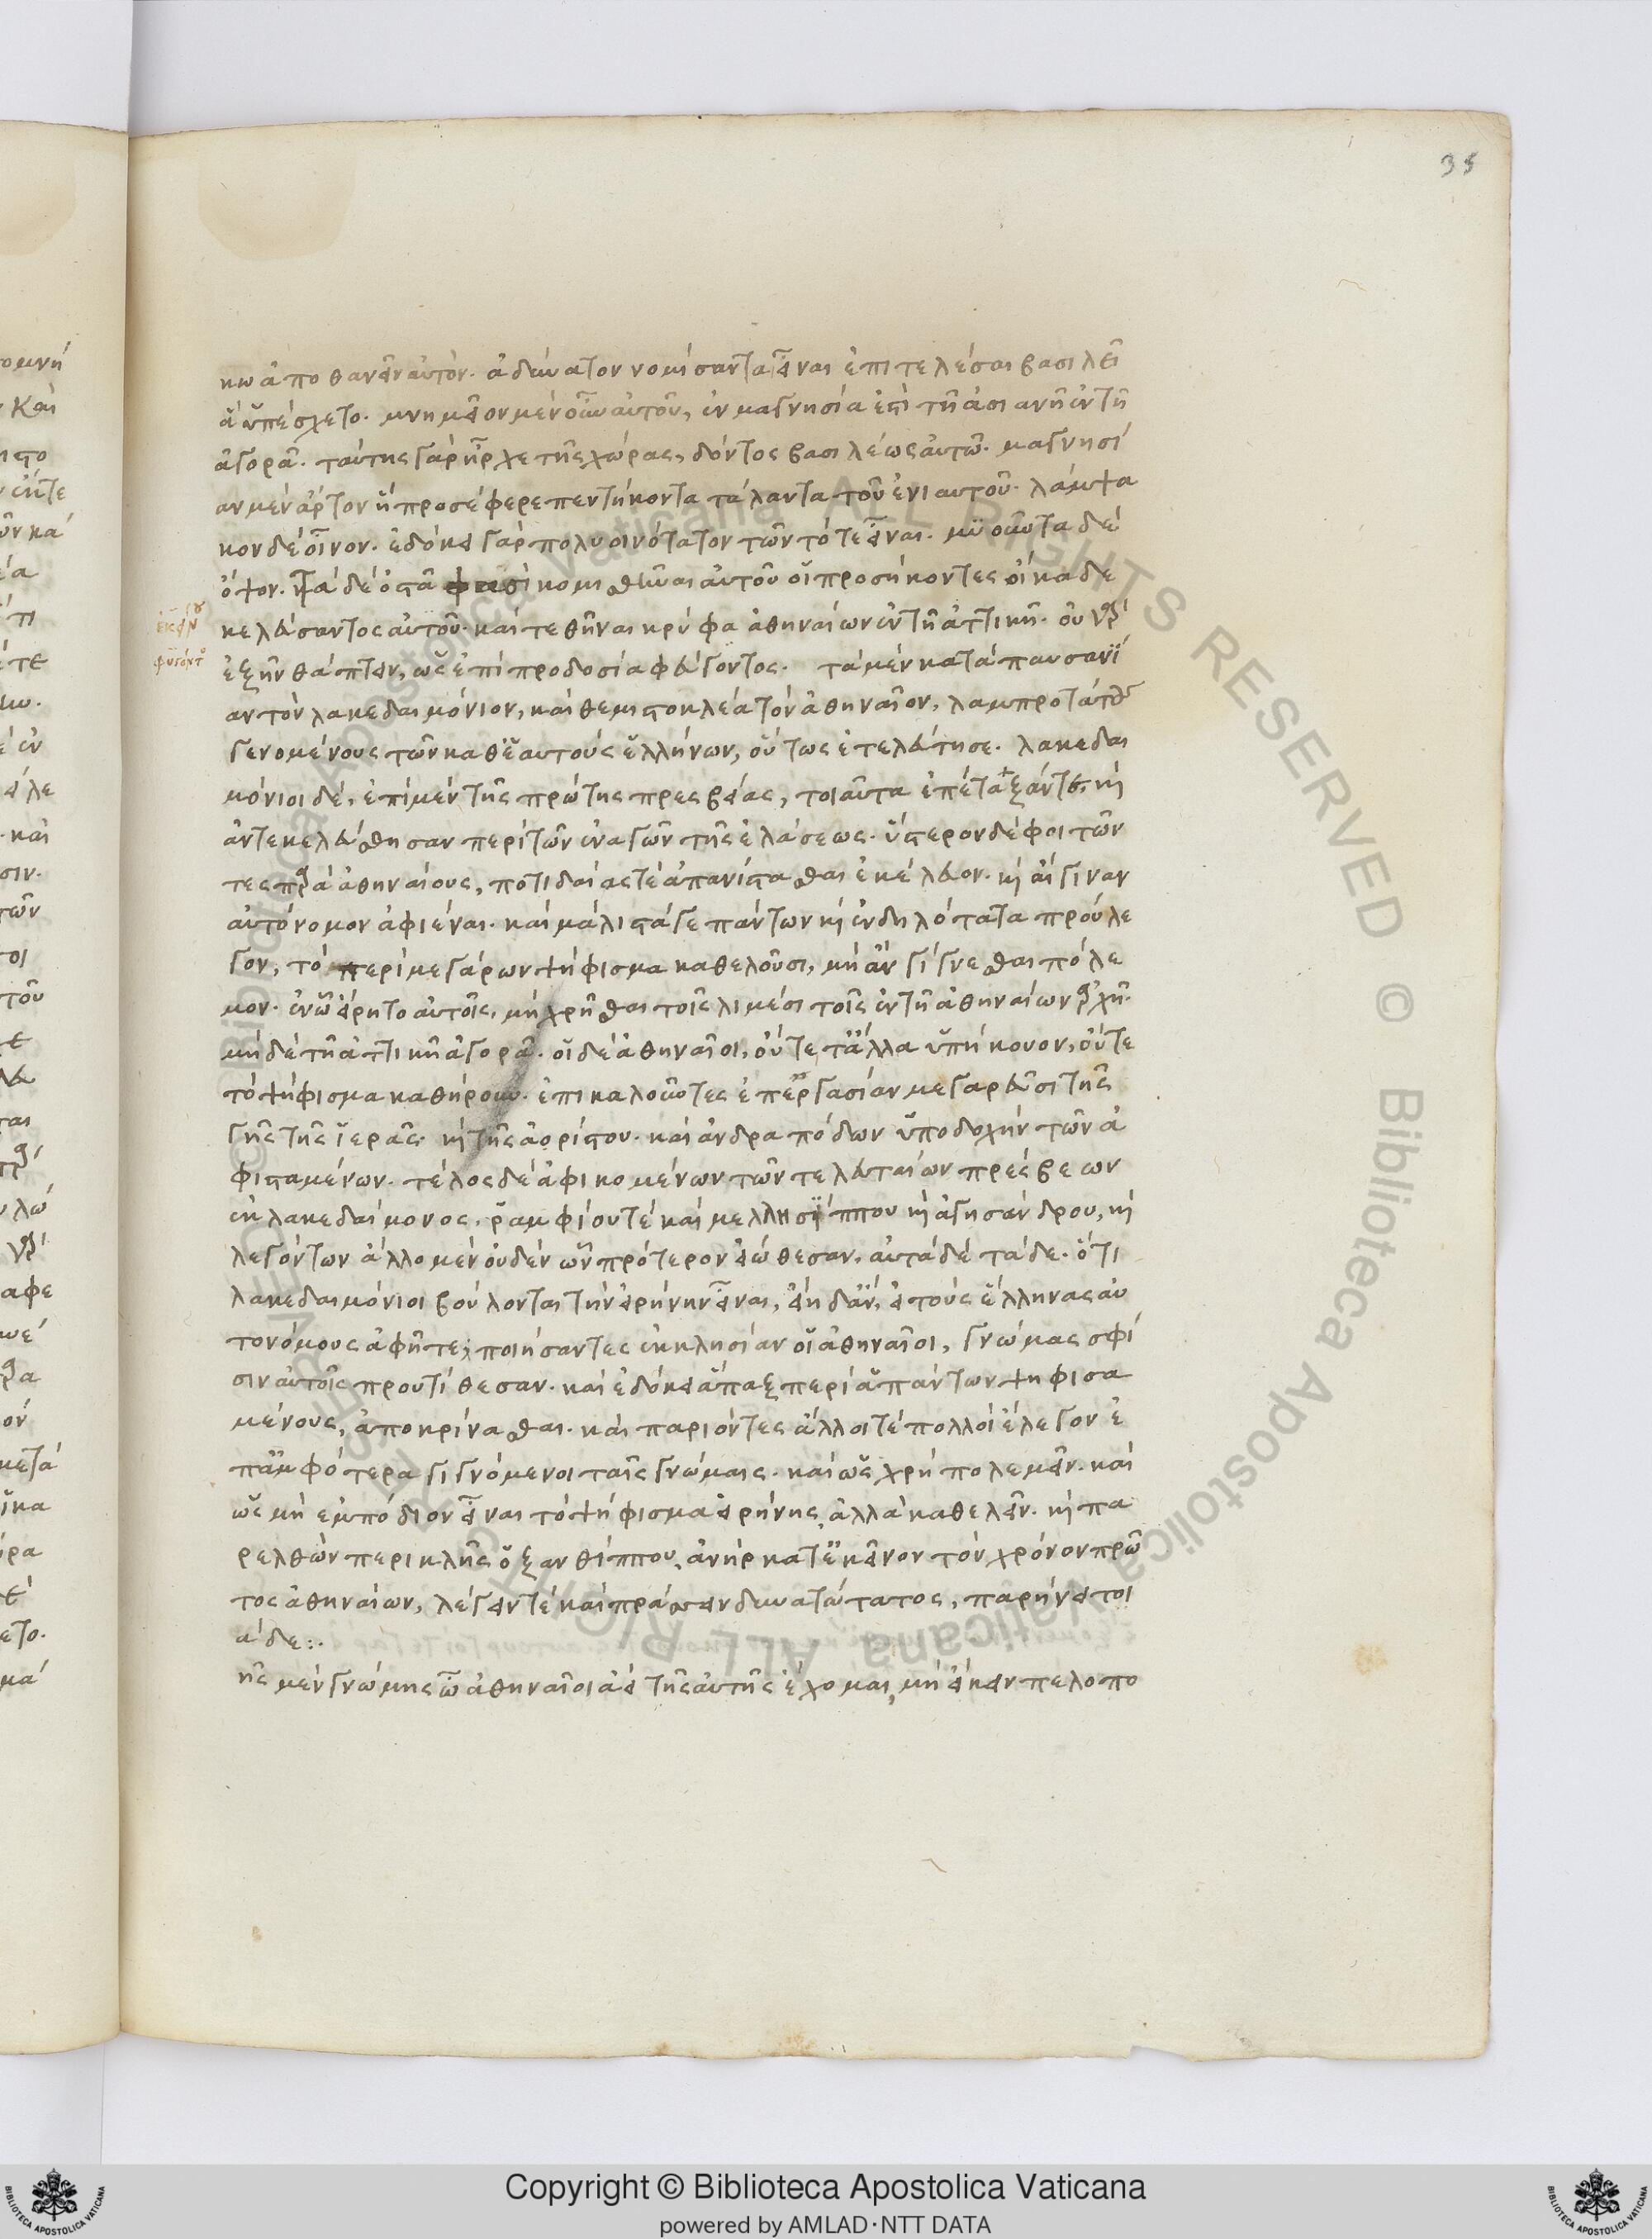 35
κω ἀποθανεῖν αὐτὸν. ἀδύνατον νομίσαντα εἶναι ἐπιτελέσαι βασιλεῖ
ἃ ὑπέσχετο. μνημεῖον μὲν οὖν αὐτοῦ, ἐν μαγνησία ἐστὶ τῆ ἀσιανῆ ἐν τῆ
ἀγορᾶ. ταύτης γὰρ ἦρχε τῆς χώρας, δόντος βασιλέως αὐτῶ. μαγνησί
αν μὲν ἄρτον ἣ προσέφερε πεντήκοντα τάλαντα τοῦ ἐνιαυτοῦ. λάμψα
κον δὲ οἶνον. ἐδόκει γὰρ πολυοινότατον τῶν τότε εἶναι. μϋοῦντα δὲ
ὄψον. τὰ δὲ ὀστᾶ φασὶ κομισθῆναι αὐτοῦ οἱ προσήκοντες οἴκαδε
κελεύσαντος αὐτοῦ. καὶ τεθῆναι κρύφα ἀθηναίων ἐν τῆ ἀττικῆ. οὐ γὰρ
ἐξῆν θάπτειν, ὡς ἐπὶ προδοσία φεύγοντος. τὰ μὲν κατὰ παυσανί
αν τὸν λακεδαιμόνιον, καὶ θεμιστοκλέα τὸν ἀθηναῖον, λαμπροτάτους
γενομένους τῶν καθ' ἑαυτοὺς ἑλλήνων, οὕτως ἐτελεύτησε. λακεδαι
μόνιοι δὲ, ἐπὶ μὲν τῆς πρώτης πρεσβείας, τοιαῦτα ἐπέταξάν τε, καὶ
ἀντεκελεύσθησαν περὶ τῶν ἐναγῶν τῆς ἐλάσεως. ὕστερον δὲ φοιτῶν
τες παρὰ ἀθηναίους, ποτιδαίας τὲ ἀπανίστασθαι ἐκέλευον. καὶ αἴγιναν
αὐτόνομον ἀφιέναι. καὶ μάλιστά γε πάντων καὶ ἐνδηλότατα προύλε
γον, τὸ περὶ μεγάρων ψήφισμα καθελοῦσι, μὴ ἂν γίγνεσθαι πόλε
μον. ἐν ὧ εἴρητο αὐτοῖς, μὴ χρῆσθαι τοῖς λιμέσι τοῖς ἐν τῆ ἀθηναίων ἀρχῆ.
μὴδὲ τῆ ἀττικῆ ἀγορᾶ. οἱ δὲ ἀθηναῖοι, οὔτε τἄλλα ὑπήκουον, οὔτε
τὸ ψήφισμα καθήρουν. ἐπικαλοῦντες ἐπεργασίαν μεγαρεῦσι τῆς
γῆς τῆς ἱερᾶς. καὶ τῆς ἀορίστου. καὶ ἀνδραπόδων ὑποδοχὴν τῶν ἀ
φισταμένων. τέλος δὲ ἀφικομένων τῶν τελευταίων πρέσβεων
ἐκ λακεδαίμονος, ῥαμφίου τὲ καὶ μελλησίππου καὶ ἀγησάνδρου, καὶ
λεγόντων ἄλλο μὲν οὐδὲν ὧν πρότερον εἰώθεσαν, αὐτὰ δὲ τάδε. ὅτι
λακεδαιμόνιοι βούλονται τὴν εἰρήνην εἶναι, εἴη δ' ἂν, εἰ τοὺς ἕλληνας αὐ
τονόμους ἀφῆτε; ποιήσαντες ἐκκλησίαν οἱ ἀθηναῖοι, γνώμας σφί
σιν αὐτοῖς προυτίθεσαν. καὶ ἐδόκει ἅπαξ περὶ ἁπάντων ψηφισα
μένους, ἀποκρίνασθαι. καὶ παριόντες ἄλλοι τὲ πολλοὶ ἔλεγον ἐ
π' ἀμφότερα γιγνόμενοι ταῖς γνώμαις. καὶ ὡς χρὴ πολεμεῖν. καὶ
ὡς μὴ εμπόδιον εἶναι τὸ ψήφισμα εἰρήνης, ἀλλὰ καθελεῖν. καὶ πα
ρελθὼν περικλῆς ὁ ξανθίππου, ἀνὴρ κατ' ἐκεῖνον τὸν χρόνον πρῶ
τος ἀθηναίων, λέγειν τὲ καὶ πράσσειν δυνατώτατος, παρήνει τοι
άδε:.
ῆς μὲν γνώμης ὦ ἀθηναῖοι ἀεὶ τῆς αὐτῆς ἔχομαι, μὴ εἴκειν πελοπο
Copyright © Biblioteca Apostolica Vaticana
powered by AMLAD·NTT DATA